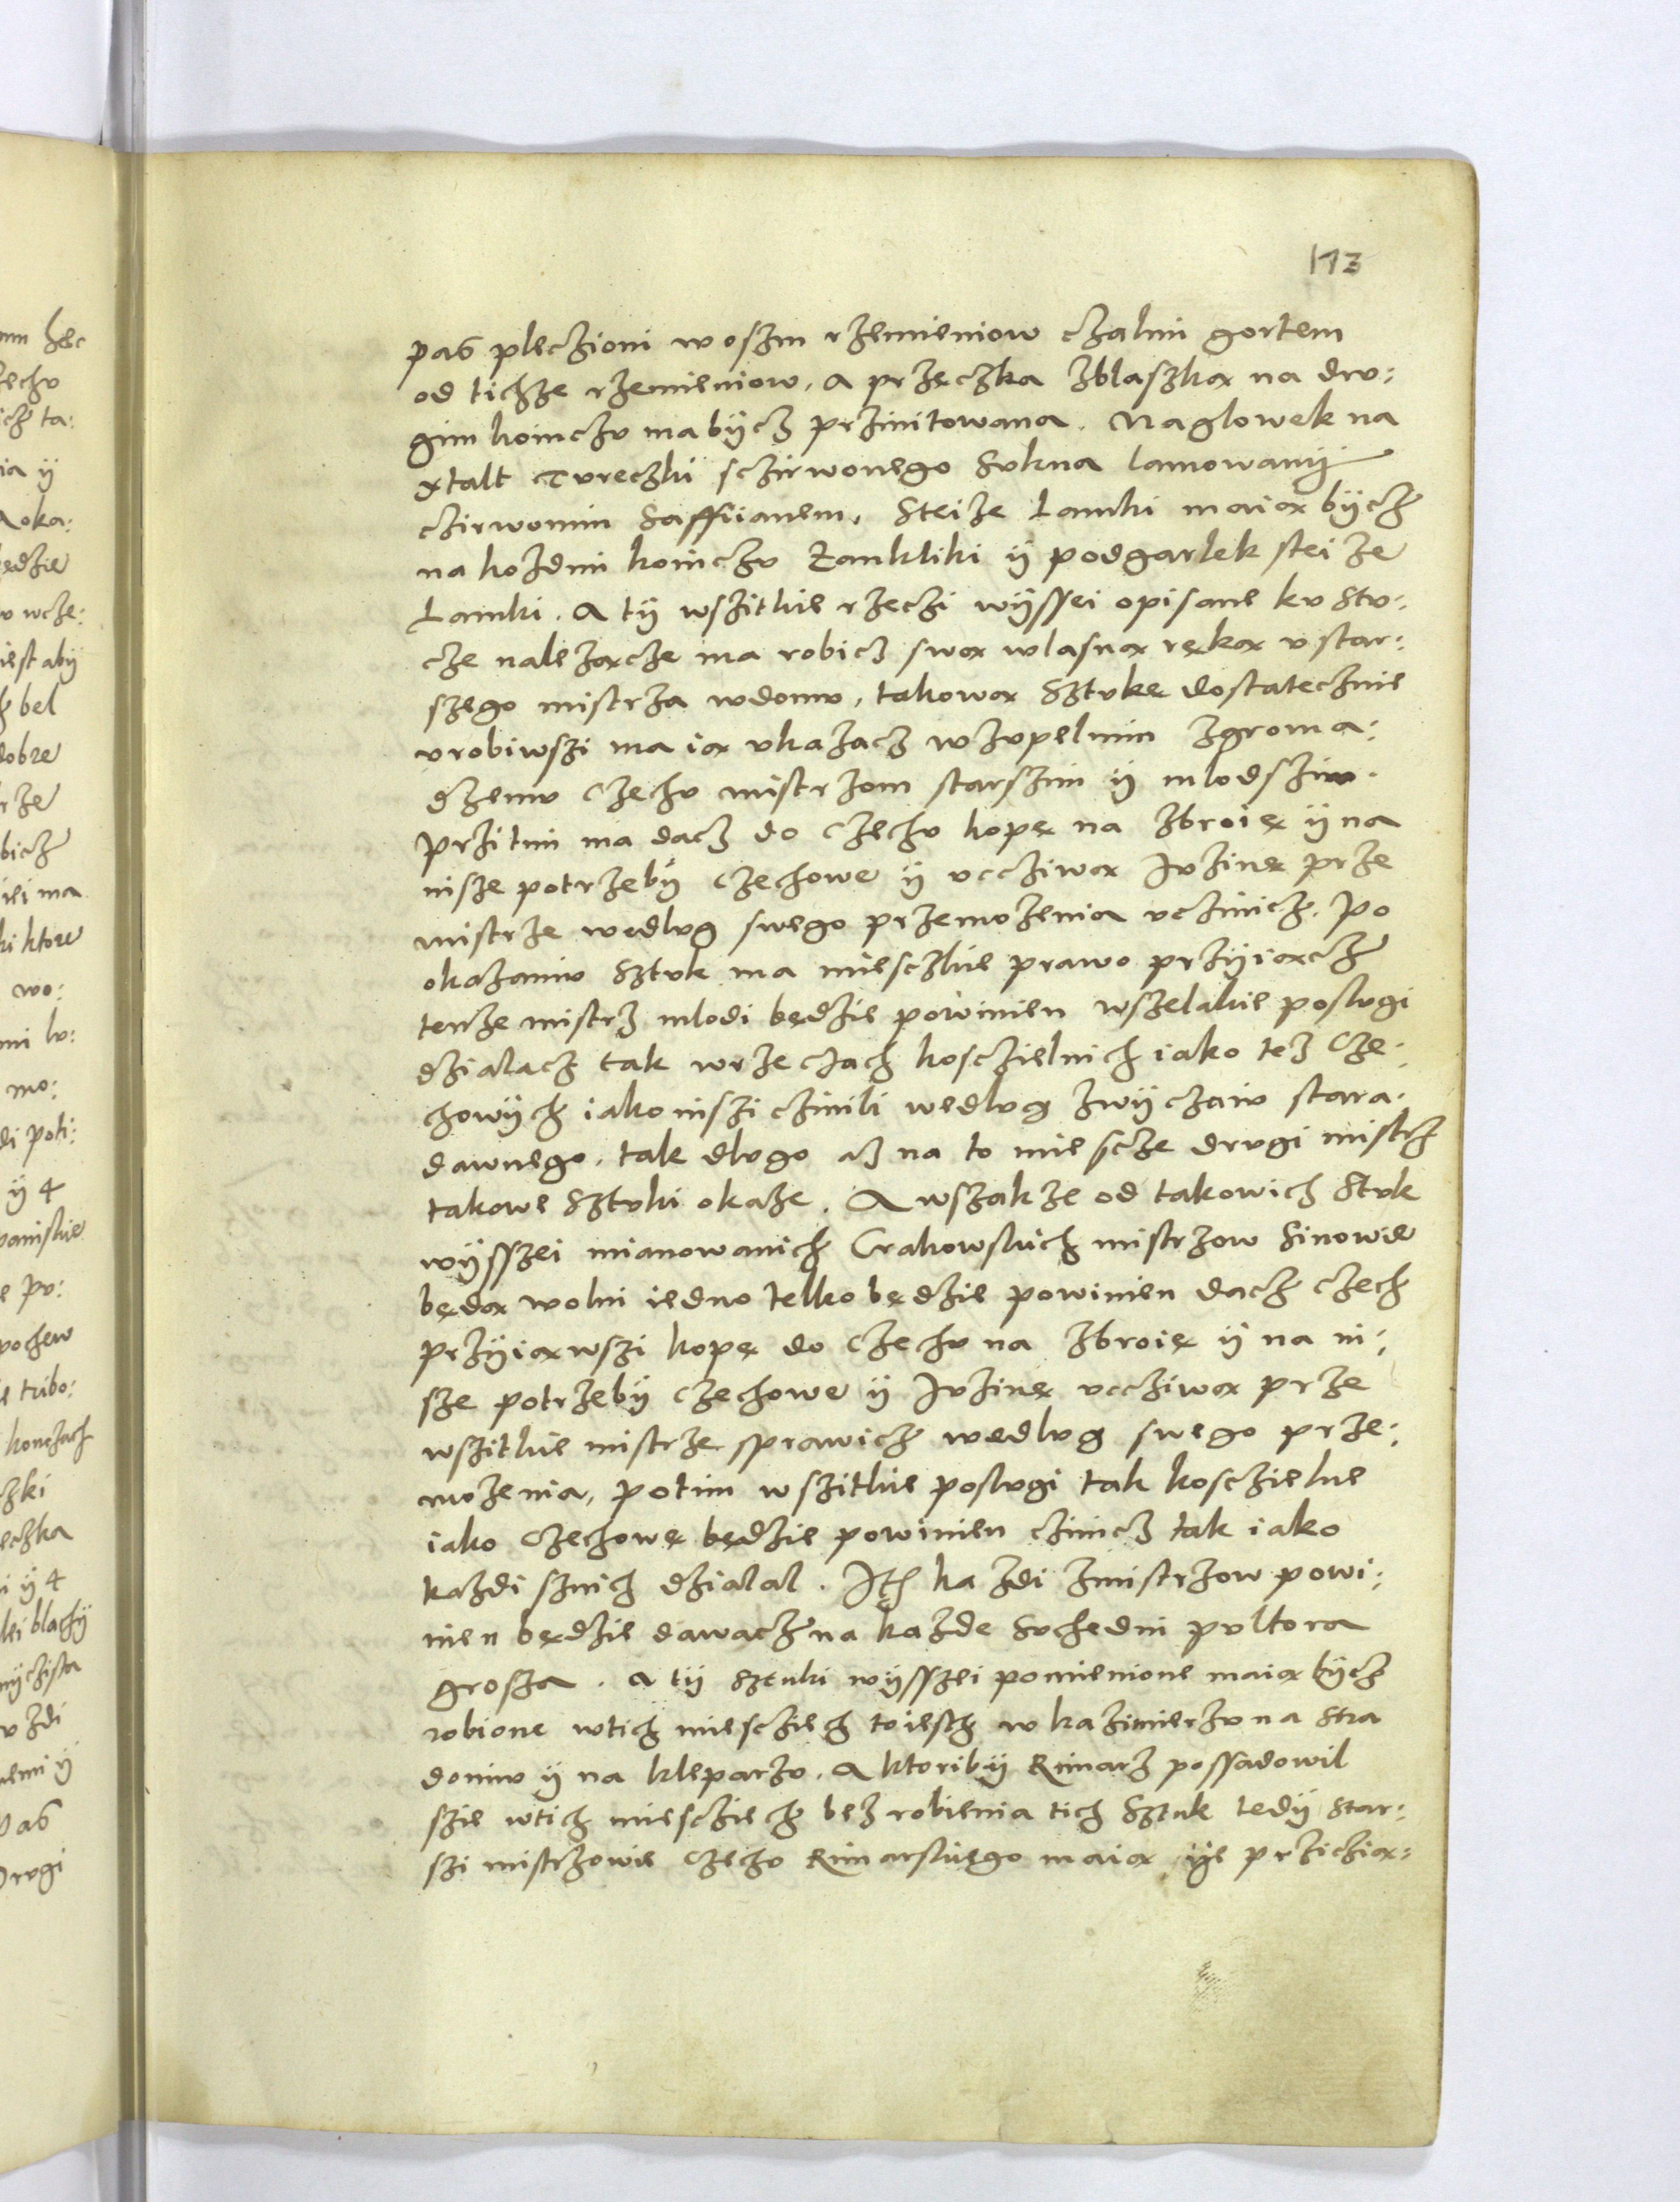 173
pas plecżioni w osżm rżemieniow cżalmi gortem
od tichże rżemieniow, a przęcżka zblaszką na dru:
gim koinczu ma bÿcz przinitowana. Naglowek na
xtalt Tureczki sczirwonego Sukna lamowanÿ
cżirwonim Saffiianem, Steize Lamki maią bÿcz
na kożdmi koinczu Zankliki ÿ podgarlek steize
Lamki. A tÿ wszitkie rzeczi wÿssei opisane ku Stu:
cze należącże ma robicz swą wlasną ręką u star:
szego mistrza wdomu, takową Sztukę dostatecznie
urobiwszi ma ią ukazacz wzupelnim zgroma:
dzeniu Czechu mistrzom starszim ÿ mlodszim.
Przitim ma dacz do Czechu kopę na zbroię ÿ na
nisze potrzebÿ Czechowe ÿ uccziwą Juzinę prze
mistrze wedlug swego przemożenia uczinicz. Po
okazaniu Sztuk ma miesczkie prawo przÿiącz
tenże mistrz mlodi będzie powinien wszelakie poslugi
dzialacz tak wrzeczach kosczielnich iako też Cze:
chowÿch iako inszi czinili wedlug zwÿczaiu stara:
dawnego, tak dlugo aż na to miescze drugi mistrz
takowe Sztuki okaże. A wszakże od takowich Stuk
wÿsszei mianowanich Crakowskich mistrzow Sinowie
będą wolni iedno telko będzie powinien dacz Czech
przÿiąwszi kopę do Czechu na zbroię ÿ na in:
sze potrzebÿ Czechowe ÿ Juzinę uccziwą prze
wszitkie mistrze sprawicz wedlug swego prze:
możenia, potim wszitkie poslugi tak kosczielne
iako Czechowe będzie powinien czinicz tak iako
każdi sznich dzialal. Ite każdi zmistrzow powi:
nien będzie dawacz na każde Suchedni pultora
grosza. A tÿ Sztuki wÿsszei pomienione maią bÿcz
robione wtich miescziech toiesth w kazimierzu na Stra
domiu ÿ na kleparzu. A ktoribÿ Rimarz possadowil
szie wtich miescziech bez robienia tich Sztuk tedÿ star:
szi mistrzowie Czechu Rimarskiego maią ÿe przicżią: